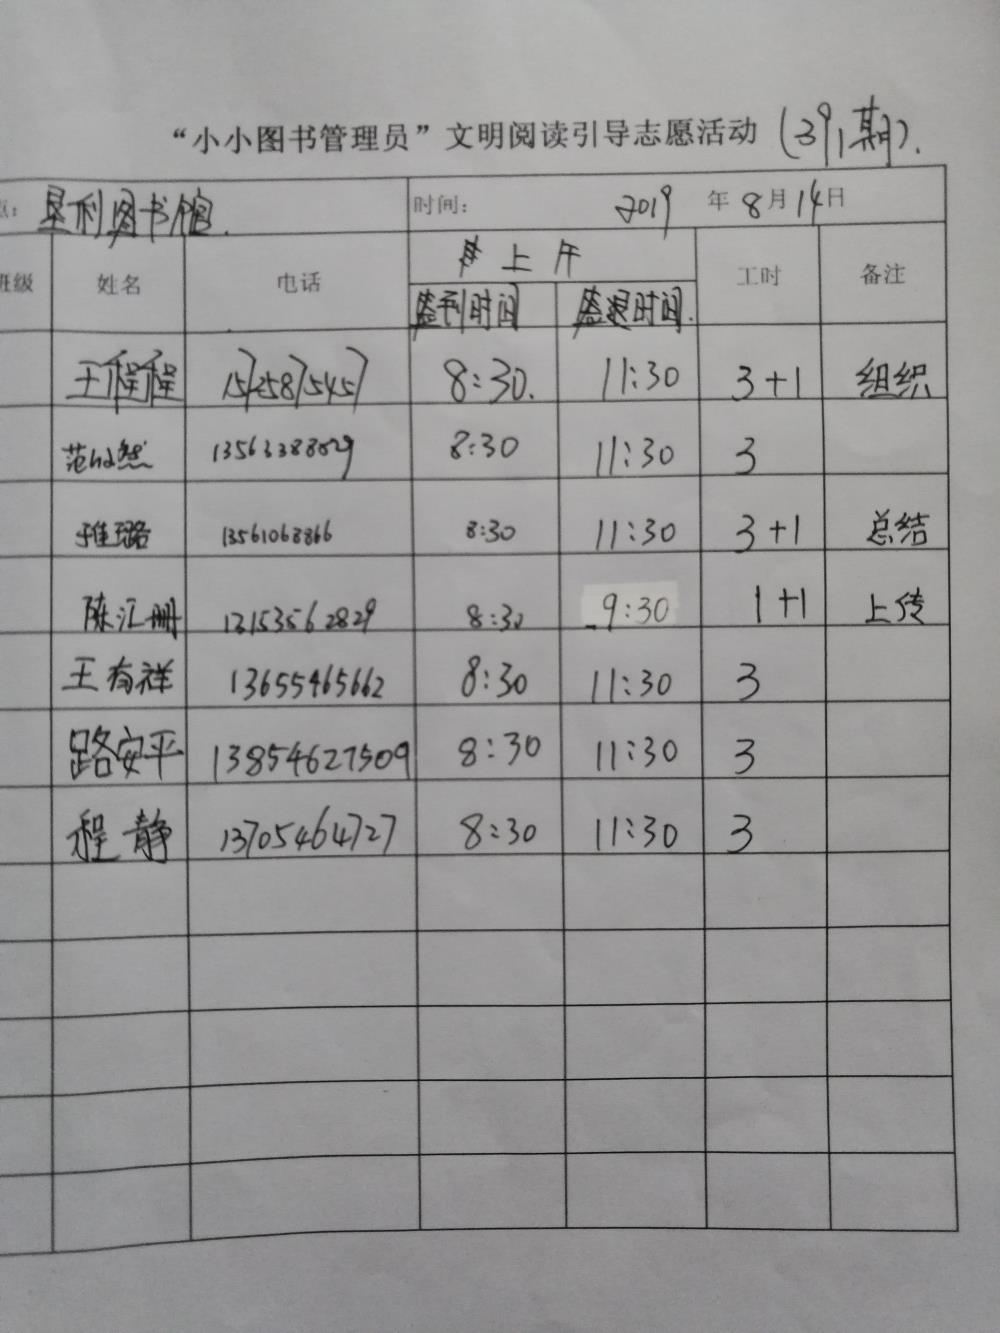 “小小图书管理员”文明阅读引导志愿活动（391期）.
点: 垦利图书馆. 时间: 2019 年 8 月 14 日
班级 姓名 电话 上午 工时 备注
签到时间 签退时间.
王程程 15725871545 8:30. 11:30 3+1 组织
8:30 11:30 3
8:30 11:30 3+1 总结
陈汇册 8:30 9:30 1+1 上传
王有祥 13655465662 8:30 11:30 3
路安平 13854627509 8:30 11:30 3
程静 13705464727 8:30 11:30 3